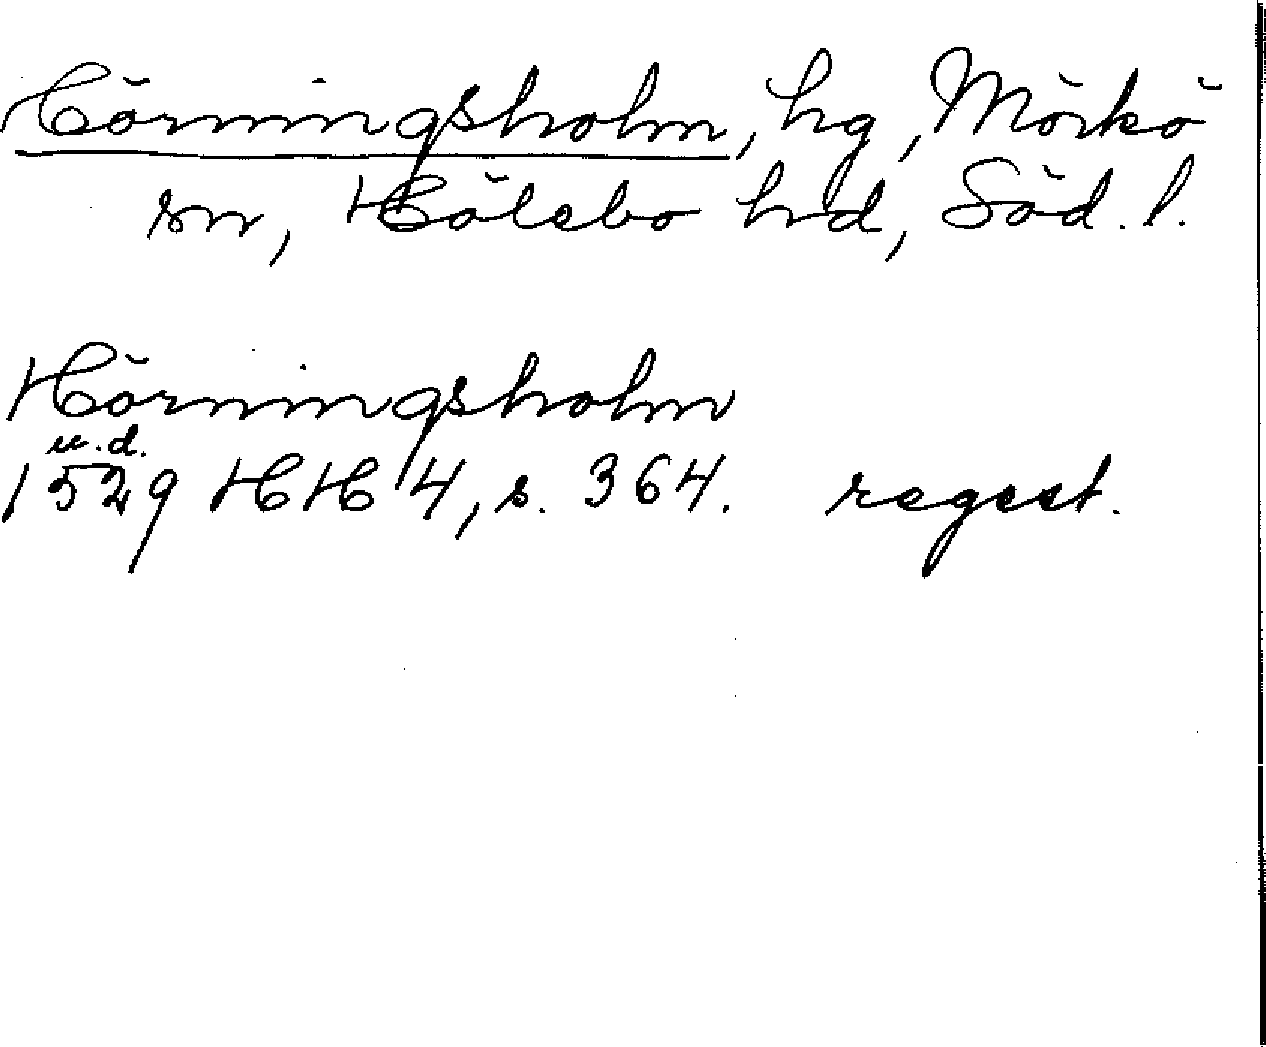 Hörningsholm, hg, Mörkö
sn, Hölebo hd, Söd. l.
Hörningsholm
u.d.
1529 HH 4, s. 364. regest.